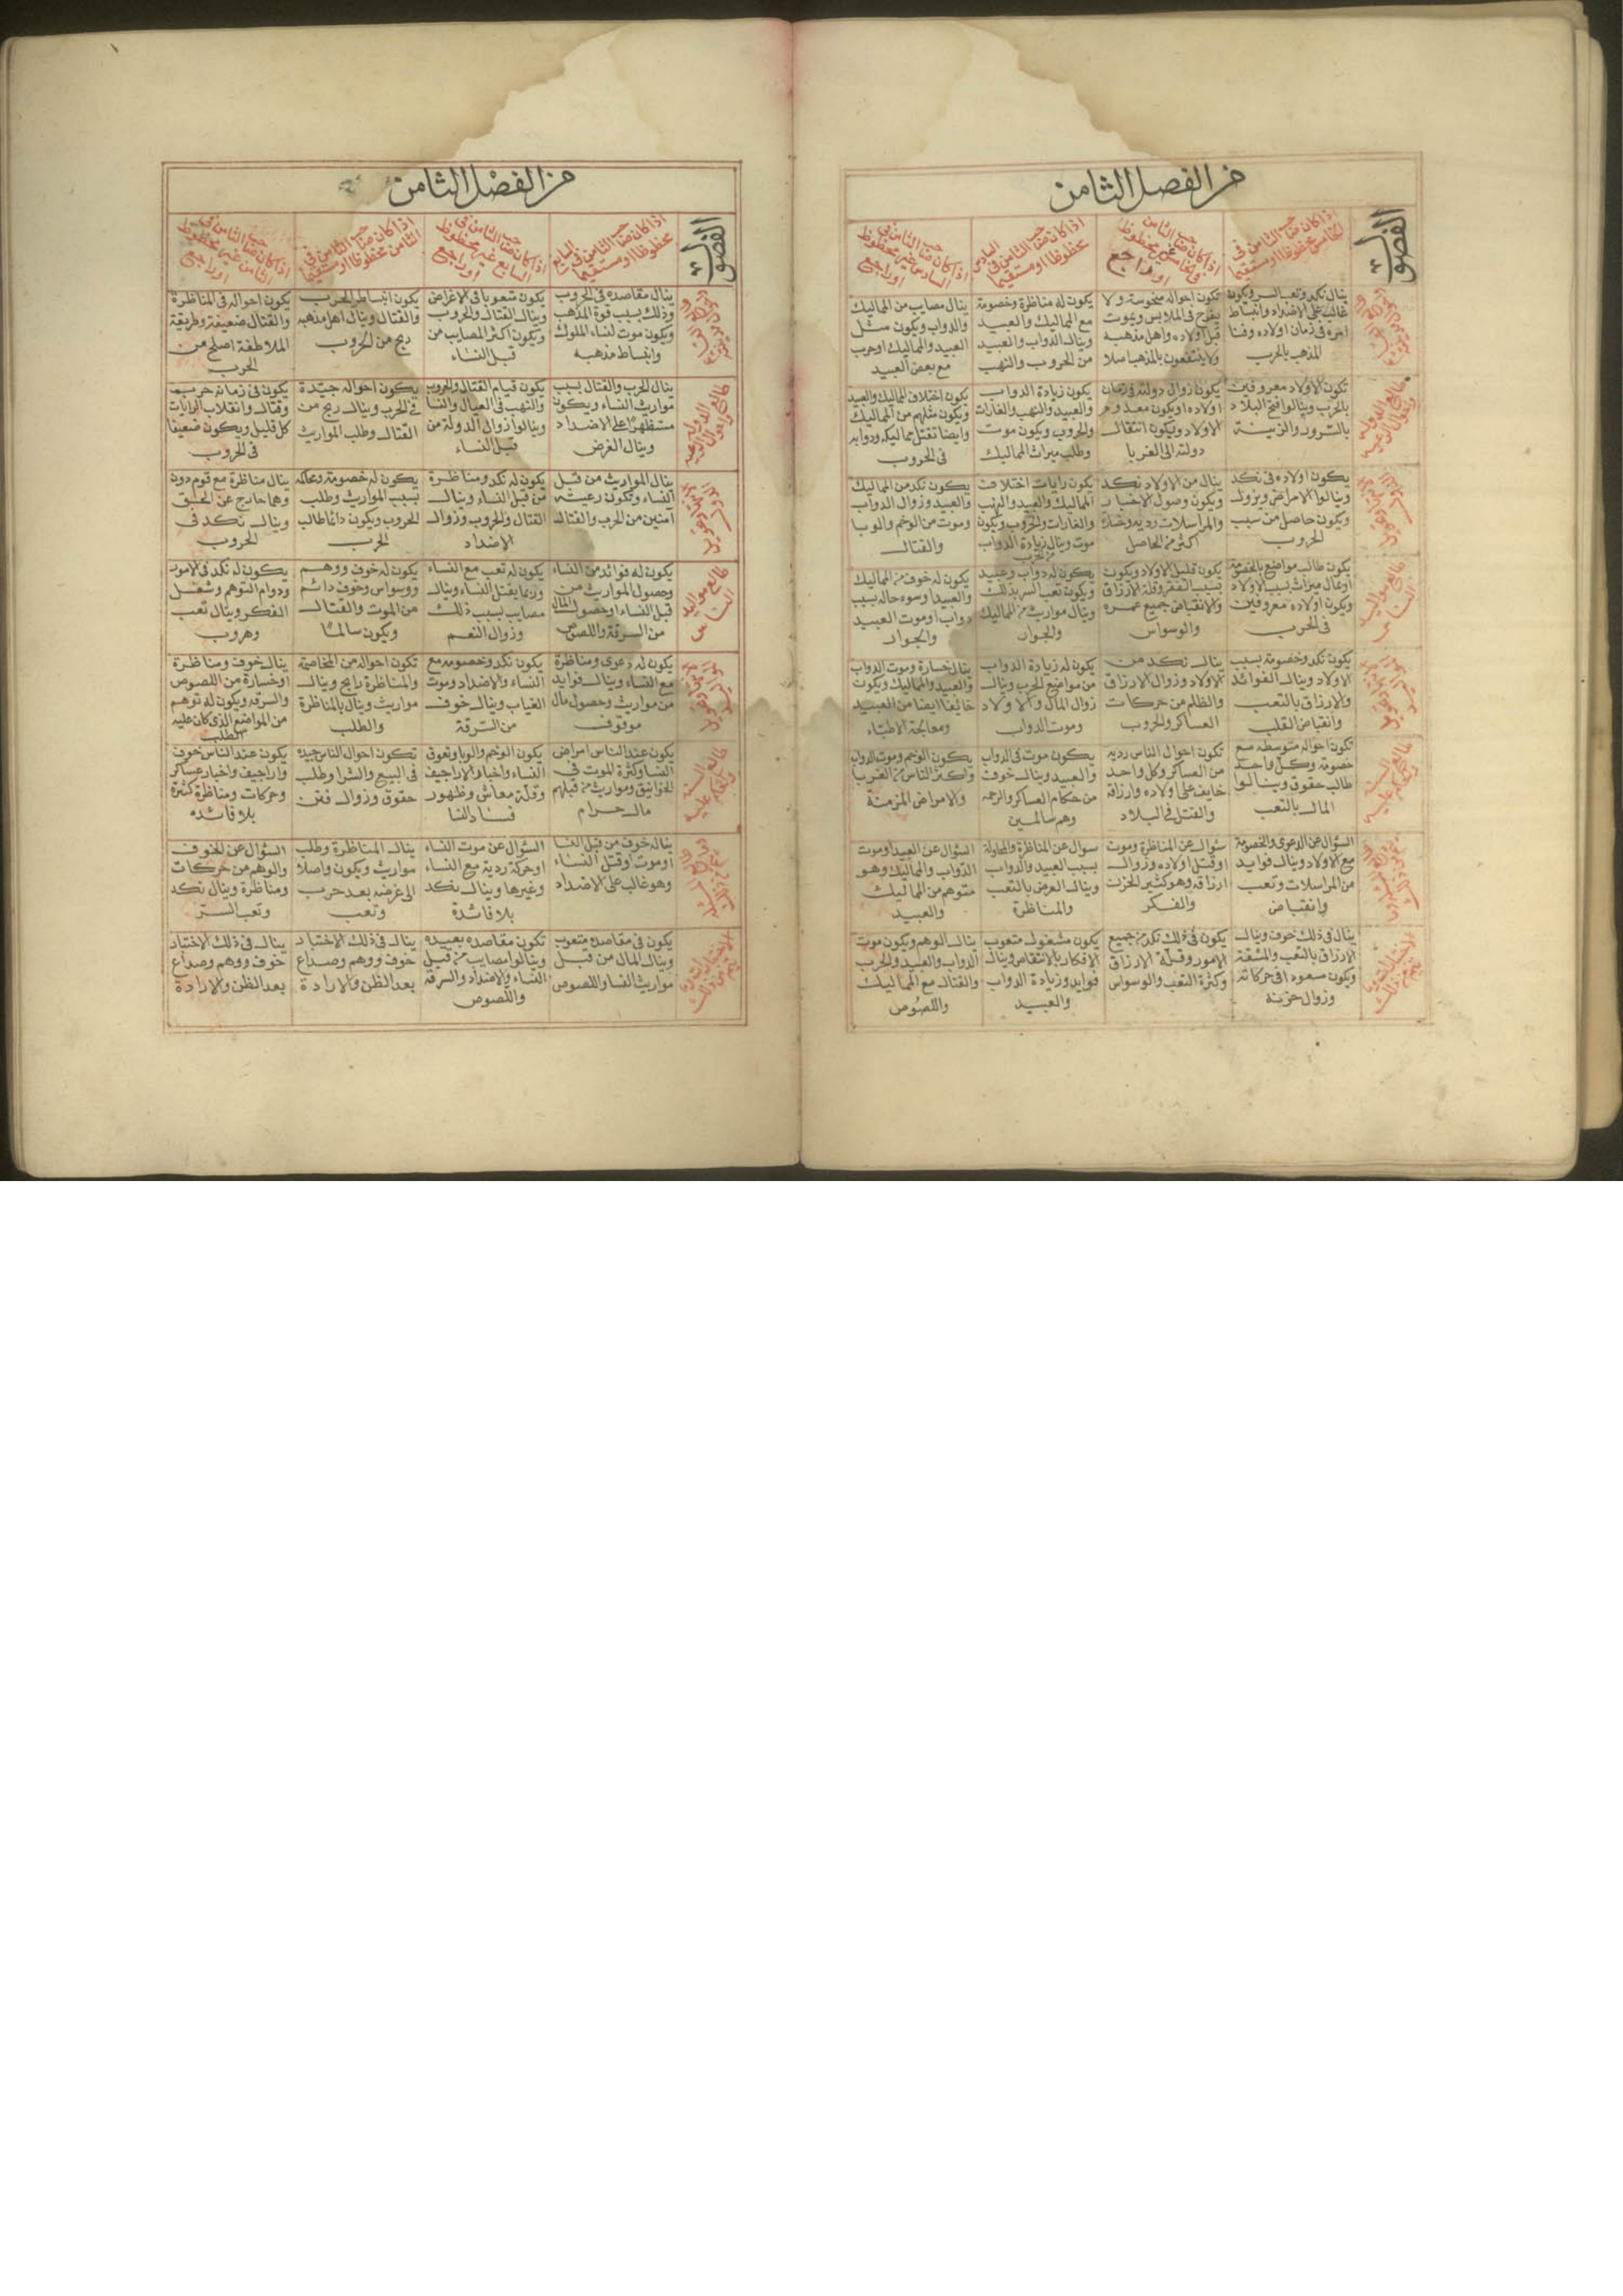 من الفصل الثامن
الفصول
اذا كان صاحب الثامن فى
الخامس محظوظا او مستقيما
اذا كان صاحب الثامن
فى الخامس غير محظوظ
او راجع
اذا كان صاحب الثامن فى السادس
محظوظا او مستقيما
اذا كان صاحب الثامن فى
السادس غير محظوظ
او راجع
ينال نكد وتعب السر ويكون
غالب على الاضداد وانبساط
امره فى زمان اولاده وفنا
المذهب بالحرب
تكون احواله منحوسة ولا
يفرح فى الملابس ويموت
قبل اولاده واهل مذهبه
ولا ينتفعون بالمذهب اصلا
يكون له مناظرة وخصومة
مع المماليك والعبيد
وينال الدواب والعبيد
من الحروب والنهب
ينال مصايب من المماليك
والدواب ويكون مثل
العبيد والمماليك او حرب
مع بعض العبيد
طالع الدولة
تكون الاولاد معروفين
بالحرب وينالوا فتح البلاد
بالسرور والزينة
يكون زوال دولته فى زمان
اولاده او يكون معدوم
الاولاد ويكون انتقال
دولته الى الغربا
يكون زيادة الدواب
والعبيد والنهب والغارات
والحروب ويكون موت
وطلب ميراث المماليك
يكون اختلاف المماليك والعبيد
ويكون مثلهم من المماليك
وايضا تقتل مماليكه ودوابه
فى الحروب
يكون اولاده فى نكد
وينالوا الامراض ويزول
ويكون حاصل من سبب
الحروب
ينال من الاولاد نكد
ويكون وصول الاخبار
والمراسلات رديه وخساره
اكثر من الحاصل
يكون رايات اختلافت
المماليك والعبيد والنهب
والغارات والحروب ويكون
موت وينال زيادة الدواب
من الحرب
يكون نكد من المماليك
والعبيد وزوال الدواب
وموت من الوخم والوبا
والقتال
طالع مواليد
الناس
يكون طالب مواضع بالخصومة
او مال ميراث بسبب الاولاد
ويكون اولاده معروفين
فى الحرب
يكون قليل الاولاد ويكون
بسبب الفقر وقلة الارزاق
والانقباض جميع عمره
والوسواس
يكون له دواب وعبيد
ويكون تعب السر بذلك
وينال مواريث من المماليك
والجوار
يكون له خوف من المماليك
والعبيد او سوء حاله بسبب
دواب او موت العبيد
والجوار
يكون نكد وخصومة بسبب
الاولاد وينال الفوائد
والارزاق بالتعب
وانقباض القلب
ينال نكد من
الاولاد وزوال الارزاق
والظلم من حركات
العساكر والحروب
يكون له زيادة الدواب
من مواضع الحرب وينال
زوال المال والاولاد
وموت الدواب
ينال خسارة وموت الدواب
والعبيد والمماليك ويكون
خائفا ايضا من العبيد
ومعالجة الاطباء
طالع السنة
تكون احواله متوسطه مع
خصومة وكل واحد
طالب حقوق وينالوا
المال بالتعب
تكون احوال الناس رديه
من العساكر وكل واحد
خايف على اولاده وارزاقه
والقتل فى البلاد
يكون موت فى الدواب
والعبيد وينال خوف
من حكام العساكر والرحمه
وهم سالمين
يكون الوخم وموت الدواب
واكثر الناس من الغربا
والامراض المزمنة
السؤال عن الدعوى والخصومة
مع الاولاد وينال فوايد
من المراسلات وتعب
وانقباض
سؤال عن المناظرة وموت
او قتل اولاده وزوال
ارزاقه وهو كثير الحزن
والفكر
سوال عن المناظرة والمحاولة
بسبب العبيد والدواب
وينال الغرض بالتعب
والمناظرة
السؤال عن العبيد او موت
الدواب والمماليك وهو
متوهم من المماليك
والعبيد
ينال فى ذلك خوف وينال
الارزاق بالتعب والمشقة
ويكون سعود فى حركاته
وزوال حزنه
يكون فى ذلك نكد من جميع
الامور وقلة الارزاق
وكثرة التعب والوسواس
يكون مشغول متعوب
الافكار بالانتقاص وينال
فوايد وزيادة الدواب
والعبيد
ينال الوهم ويكون موت
الدواب والعبيد والحرب
والقتال مع المماليك
واللصوص
من الفصل الثامن
الفصول
اذا كان صاحب الثامن فى السابع
محظوظا او مستقيما
اذا كان صاحب الثامن فى
السابع غير محظوظ
او راجع
اذا كان صاحب الثامن فى
الثامن محظوظا او مستقيما
اذا كان صاحب الثامن فى
الثامن غير محظوظ
او راجع
ينال مقاصده فى الحروب
وذلك بسبب قوة المذهب
ويكون موت لنساء الملوك
وانبساط مذهبه
يكون متعوبا فى الاغراض
وينال القتال والحروب
ويكون اكثر المصايب من
قبل النساء
يكون انبساط الحرب
والقتال وينال اهل مذهبه
ربح من الحروب
يكون احواله فى المناظرة
والقتال ضعيفة وطريقة
الملاطفة اصلح من
الحرب
طالع الدولة
ينال الحرب والقتال بسبب
مواريث النساء ويكون
مستظهرا على الاضداد
وينال الغرض
يكون قيام القتال والحروب
والنهب فى العيال والنسا
وينالوا زوال الدولة من
قبل النساء
يكون احواله جيدة
فى الحرب وينال ربح من
القتال وطلب المواريث
يكون فى زمانه حرب
وقتال وانقلاب
كل قليل ويكون ضعيفا
فى الحروب
ينال المواريث من قبل
النساء وتكون رعيته
آمنين من الحرب والقتال
يكون له نكد ومناظرة
من قبل النساء وينال
القتال والحروب وزوال
الاضداد
يكون له خصومة ومحاكمه
بسبب المواريث وطلب
الحروب ويكون دائما طالب
الحرب
ينال مناظرة مع قوم دون
وهما خارج عن الحق
وينال نكد فى
الحروب
طالع مواليد
الناس
يكون له فوائد من النساء
وحصول المواريث من
قبل النساء او حصول المال
من السرقة واللصوص
يكون له تعب مع النساء
وربما يقتل النساء وينال
مصايب بسبب ذلك
وزوال النعم
يكون له خوف ووهم
ووسواس وخوف دائم
من الموت والقتال
ويكون سالما
يكون له نكد فى الامور
ودوام التوهم وشغل
الفكر وينال تعب
وهروب
يكون له دعوى ومناظرة
مع النساء وينال فوايد
من مواريث وحصول مال
موقوف
يكون نكد وخصومه مع
النساء والاضداد وموت
الغياب وينال خوف
من السرقة
تكون احواله من المخاصمة
والمناظرة رابح وينال
مواريث وينال بالمناظرة
والطلب
ينال خوف ومناظرة
او خسارة من اللصوص
والسرقه ويكون له توهم
من المواضع الذى كان عليه
الطلب
طالع السنة
يكون عند الناس امراض
النسا وكثرة الموت فى
الخواتين ومواريث من قبلهم
مال حرام
يكون الوخم والوبا وتعوق
النساء واخبار الاراجيف
وقلة معاش وظهور
فساد النسا
تكون احوال الناس جيده
فى البيع والشرا وطلب
حقوق وزوال فتن
يكون عند الناس خوف
واراجيف واخبار عساكر
وحركات ومناظرة كثيرة
بلا فائده
يناله خوف من قبل النسا
او موت او قتل النساء
وهو غالب على الاضداد
السؤال عن موت النساء
او حركة ردية مع النساء
وغيرها وينال نكد
بلا فائدة
ينال المناظرة وطلب
مواريث ويكون واصلا
الى غرضه بعد حرب
وتعب
السؤال عن الخوف
والوهم من حركات
ومناظرة وينال نكد
وتعب السر
يكون فى مقاصده متعوب
وينال المال من قبل
مواريث النسا واللصوص
تكون مقاصده بعيده
وينالوا مصايب من قبل
النساء والاضداد والسرقة
واللصوص
ينال فى ذلك الاختيار
خوف ووهم وصداع
بعد الظن والارادة
ينال فى ذلك الاختيار
خوف ووهم وصداع
بعد الظن والارادة